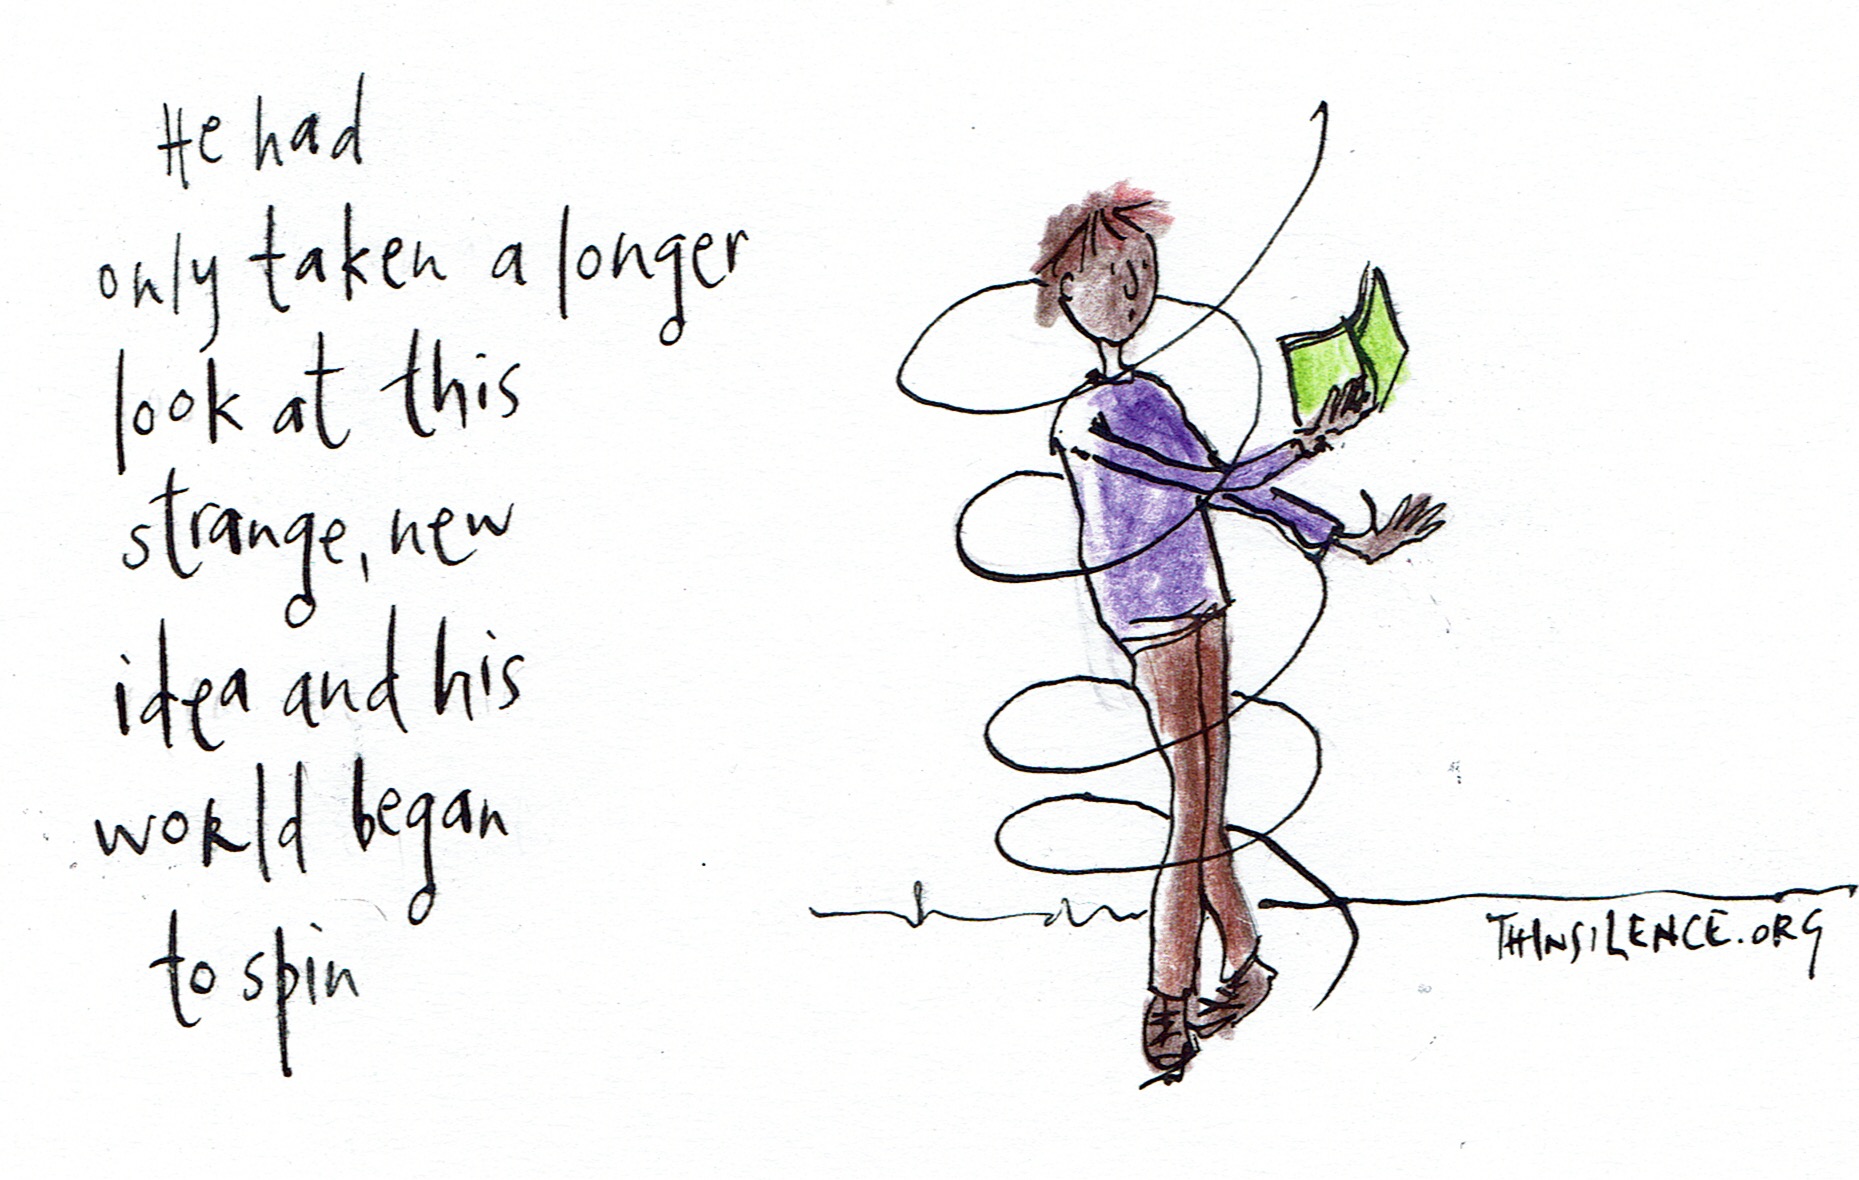 He had
only taken a longer
look at this
strange, new
idea and his
world began
to spin
THINSILENCE.ORG